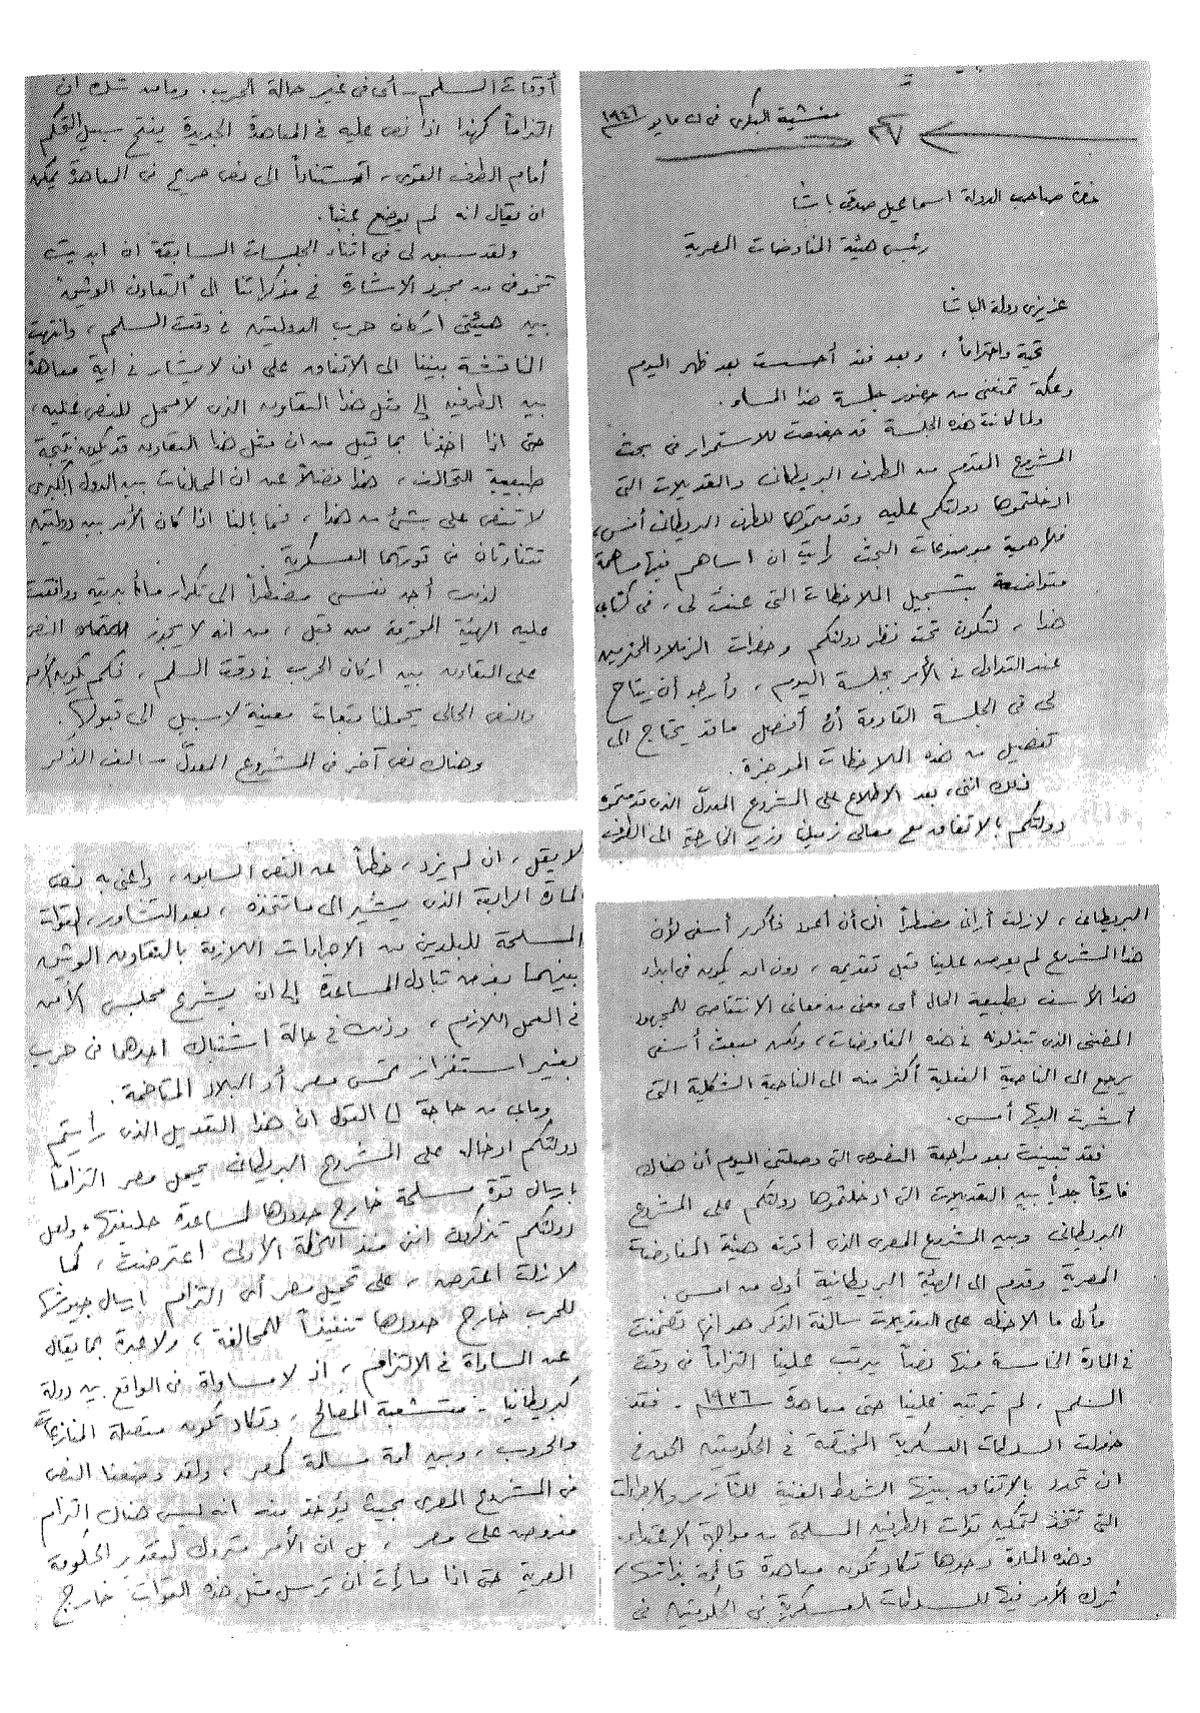 منشية البكرى فى ٢٧ مايو ١٩٤٦
حضرة صاحب الدولة اسماعيل صدقى باشا
رئيس هيئة المفاوضات المصرية
عزيزى دولة الباشا
تحية واحتراماً، وبعد فقد أحسست بعد ظهر اليوم
وعكة تمنعنى من حضور جلسة هذا المساء.
ولما كانت هذه الجلسة قد خصصت للاستمرار فى بحث
المشروع المقدم من الطرف البريطانى والتعديلات التى
ادخلتموها دولتكم عليه وقدمتموها للطرف البريطانى أمس،
فلأهمية موضوعات البحث رأيت ان اساهم فيها مساهمة
متواضعة بتسجيل الملاحظات التى عنت لى، فى كتابى
هذا، لتكون تحت نظر دولتكم وحضرات الزملاء المحترمين
عند التداول فى الأمر بجلسة اليوم، وأرجو أن يتاح
لى فى الجلسة القادمة أن أفصل ما قد يحتاج الى
تفصيل من هذه الملاحظات الموجزة.
ذلك اننى، بعد الاطلاع على المشروع المعدل الذى قدمتموه
دولتكم بالاتفاق مع معالى زميلنا وزير الخارجية الى الطرف
البريطانى، لازلت أرانى مضطراً الى أن أعود فأكرر أسفى لأن
هذا المشروع لم يعرض علينا قبل تقديمه، دون ان يكون فى ابداء
هذا الأسف بطبيعة الحال أى معنى من معانى الانتقاص للمجهود
المضنى الذى تبذلونه فى هذه المفاوضات، ولكن مبعث أسفى
يرجع الى الناحية الفعلية أكثر منه الى الناحية الشكلية التى
أشرت اليها أمس.
فقد تبينت بعد مراجعة النصوص التى وصلتنى اليوم أن هناك
فارقاً جداً بين التعديلات التى ادخلتموها دولتكم على المشروع
البريطانى وبين المشروع المصرى الذى أقرته هيئة المفاوضات
المصرية وقدم الى الهيئة البريطانية أول من امس.
وأول ما ألاحظه على التعديلات سالفة الذكر هو انها تضمنت
فى المادة الخامسة منها نصاً يرتب علينا التزاماً فى وقت
السلم، لم ترتبه علينا حتى معاهدة ١٩٣٦ م. فقد
خولت السلطات العسكرية المختصة فى الحكومتين الحق فى
ان تحدد بالاتفاق بينها الشروط الفنية للتآزر والاجراءات
التى تتخذ لتمكين قوات الطرفين المسلحة من مواجهة الاعتداء.
وهذه المادة وحدها تكاد تكون معاهدة قائمة بذاتها،
تُرك الأمر فيها للسلطات العسكرية فى الحكومتين فى
أوقات السلم – أى فى غير حالة الحرب. وما من شك ان
التزاماً كهذا اذا نص عليه فى المعاهدة الجديدة يفتح سبيل التحكم
أمام الطرف القوى، استناداً الى نص صريح فى المعاهدة يمكن
ان يقال انه لم يوضع عبثاً.
ولقد سبق لى فى اثناء الجلسات السابقة ان ابديت
تخوفى من مجرد الاشارة فى مذكراتنا الى "التعاون الوثيق"
بين هيئتى اركان حرب الدولتين فى وقت السلم، وانتهت
المناقشة بيننا الى الاتفاق على ان لا يشار فى اية معاهدة
بين الطرفين إلى مثل هذا التعاون الذى لا محل للنص عليه،
حتى اذا اخذنا بما قيل من ان مثل هذا التعاون قد يكون نتيجة
طبيعية للتحالف، هذا فضلاً عن ان المحالفات بين الدول الكبرى
لا تنص على شىء من هذا، فما بالنا اذا كان الأمر بين دولتين
تتفاوتان فى قوتهما العسكرية.
لذلك أجد نفسى مضطراً الى تكرار ما أبديته ووافقت
عليه الهيئة المحترمة من قبل، من انه لا يجوز النص
على التعاون بين اركان الحرب فى وقت السلم، فكم يكون الأمر
والنص الحالى يحملنا تبعات معينة لا سبيل الى قبولها.
وهناك نص آخر فى المشروع المعدّل سالف الذكر
لا يقل، ان لم يزد، خطراً عن النص السابق، واعنى به نص
المادة الرابعة الذى يشير الى ما تتخذه، بعد التشاور، القوات
المسلحة للبلدين من الاجراءات اللازمة بالتعاون الوثيق
بينهما بغرض تبادل المساعدة إلى ان يشرع مجلس الأمن
فى العمل اللازم، وذلك فى حالة اشتباك احدهما فى حرب
بغير استفزاز تمس مصر أو البلاد المتاخمة.
وما بى من حاجة الى القول ان هذا التعديل الذى رأيتم
دولتكم ادخاله على المشروع البريطانى يحمل مصر التزاماً
بارسال قوة مسلحة خارج حدودها لمساعدة حليفتها، ولعل
دولتكم تذكرون اننى منذ اللحظة الأولى اعترضت، كما
لازلت اعترض، على تحميل مصر أى التزام بارسال جيوشها
للحرب خارج حدودها تنفيذاً للمحالفة، ولا عبرة بما يقال
عن المساواة فى الالتزام، اذ لا مساواة فى الواقع بين دولة
كبريطانيا، متشعبة المصالح، وتكاد تكون متصلة المنازعات
والحروب، وبين امة مسالمة كمصر، ولقد وضعنا النص
فى المشروع المصرى بحيث يؤخذ منه انه ليس هناك التزام
مفروض على مصر، بل ان الأمر متروك لتقدير الحكومة
المصرية حتى اذا ما رأت ان ترسل مثل هذه القوات خارج